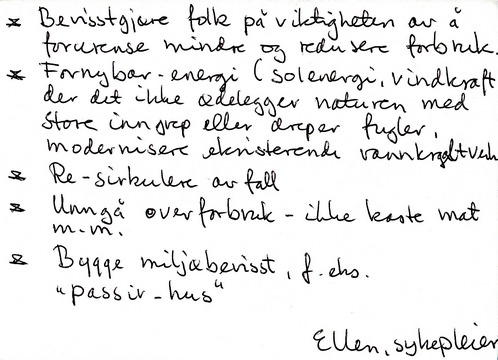 * Bevisstgjøre folk på viktigheten av å
forurense mindre og redusere forbruk.
* Fornybar-energi (solenergi, vindkraft
der det ikke ødelegger naturen med
store inngrep eller dreper fugler,
modernisere eksisterende vannkraftverk
* Re-sirkulere avfall
* Unngå overforbruk - ikke kaste mat
m.m.
* Bygge miljøbevisst, f.eks.
"passiv-hus"
Ellen, sykepleier